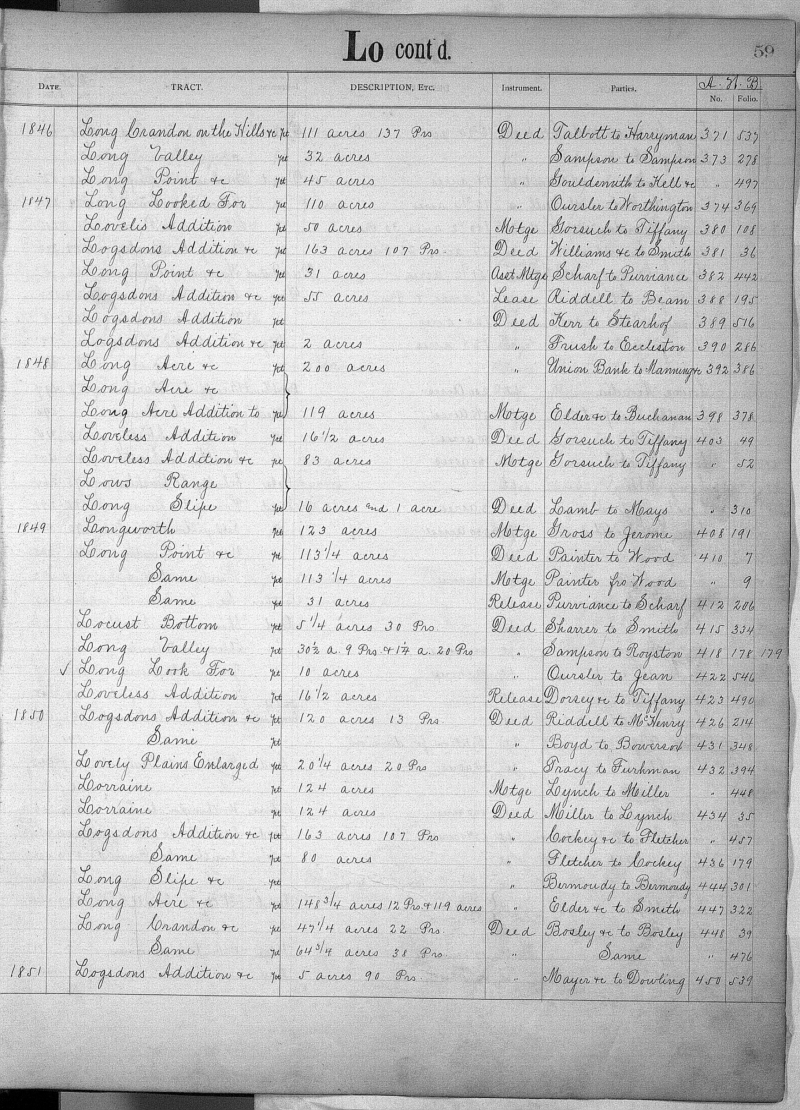 Lo cont'd. 59
DATE. TRACT. DESCRIPTION, ETC. Instrument. Parties. A. W. B.
No. Folio.
1846 Long Crandon on the Hills &c pt 111 acres 137 Prs Deed Talbott to Harryman 371 537
Long Valley pt 32 acres " Sampson to Sampson 373 278
Long Point &c pt 45 acres " Gouldsmith to Hell &c " 497
1847 Long Looked For pt 110 acres " Oursler to Worthington 374 369
Lovelis Addition pt 50 acres Mtge Gorsuch to Tiffany 380 108
Logsdons Addition &c pt 163 acres 107 Prs. Deed Williams &c to Smith 381 36
Long Point &c pt 31 acres Asst Mtge Scharf to Purviance 382 442
Logsdons Addition &c pt 55 acres Lease Riddell to Beam 388 195
Logsdons Addition pt Deed Kerr to Stearhof 389 516
Logsdons Addition &c pt 2 acres " Frush to Eccleston 390 286
1848 Long Acre &c pt 200 acres " Union Bank to Manning &c 392 386
Long Acre &c
Long Acre Addition to pt 119 acres Mtge Elder &c to Buchanan 398 378
Loveless Addition pt 16 1/2 acres Deed Gorsuch to Tiffany 403 49
Loveless Addition &c pt 83 acres Mtge Gorsuch to Tiffany " 52
Lows Range
Long Slipe pt 16 acres and 1 acre Deed Lamb to Mays " 310
1849 Longworth pt 123 acres Mtge Gross to Jerome 408 191
Long Point &c pt 113 1/4 acres Deed Painter to Wood 410 7
Same pt 113 1/4 acres Mtge Painter fro Wood " 9
Same pt 31 acres Release Purviance to Scharf 412 206
Locust Bottom pt 5 1/4 acres 30 Prs Deed Sharrer to Smith 415 334
Long Valley pt 30 1/2 a. 9 Prs & 1 1/4 a. 20 Prs " Sampson to Royston 418 178 179
✓ Long Look For pt 10 acres " Oursler to Jean 422 546
Loveless Addition pt 16 1/2 acres Release Dorsey &c to Tiffany 423 490
1850 Logsdons Addition &c pt 120 acres 13 Prs Deed Riddell to McHenry 426 214
Same pt " Boyd to Bowersox 431 348
Lovely Plains Enlarged pt 20 1/4 acres 20 Prs " Tracy to Fuhrman 432 394
Lorraine pt 124 acres Mtge Lynch to Miller " 448
Lorraine pt 124 acres Deed Miller to Lynch 434 35
Logsdons Addition &c pt 163 acres 107 Prs " Cockey &c to Fletcher " 457
Same pt 80 acres " Fletcher to Cockey 436 179
Long Slipe &c pt " Bermoudy to Bermoudy 444 301
Long Acre &c pt 148 3/4 acres 12 Prs & 119 acres " Elder &c to Smith 447 322
Long Crandon &c pt 47 1/4 acres 22 Prs Deed Bosley &c to Bosley 448 39
Same pt 64 3/4 acres 38 Prs " Same " 476
1851 Logsdons Addition &c pt 5 acres 90 Prs " Mayer &c to Dowling 450 539